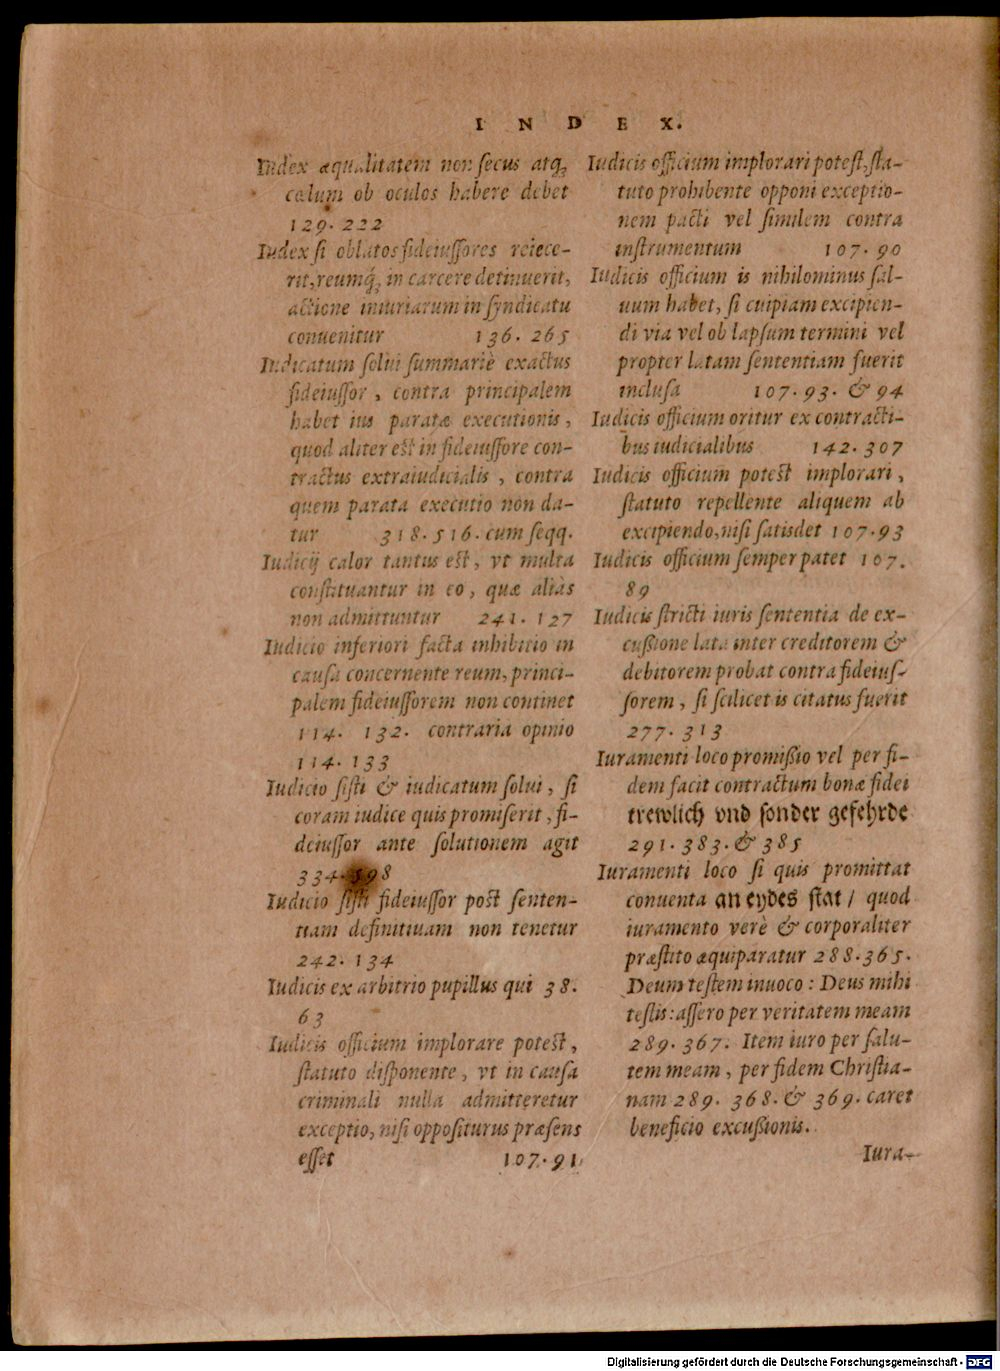 INDEX.
Iudex æqualitatem non secus atq;
cælum ob oculos habere debet
129. 222
Iudex si oblatos fideiussores reiece-
rit, reumq́; in carcere detinuerit,
actione iniuriarum in syndicatu
conuenitur 136. 265
Iudicatum solui summariè exactus
fideiussor, contra principalem
habet ius paratæ executionis,
quod aliter est in fideiussore con-
tractus extraiudicialis, contra
quem parata executio non da-
tur 318. 516. cum seqq.
Iudicij calor tantus est, vt multa
constituantur in eo, quæ aliàs
non admittuntur 241. 127
Iudicio inferiori facta inhibitio in
causa concernente reum, princi-
palem fideiussorem non continet
114. 132. contraria opinio
114. 133
Iudicio sisti & iudicatum solui, si
coram iudice quis promiserit, fi-
deiussor ante solutionem agit
334. 598
Iudicio sisti fideiussor post senten-
tiam definitiuam non tenetur
242. 134
Iudicis ex arbitrio pupillus qui 38.
63
Iudicis officium implorare potest,
statuto disponente, vt in causa
criminali nulla admitteretur
exceptio, nisi oppositurus præsens
esset 107. 91
Iudicis officium implorari potest, sta-
tuto prohibente opponi exceptio-
nem pacti vel similem contra
instrumentum 107. 90
Iudicis officium is nihilominus sal-
uum habet, si cuipiam excipien-
di via vel ob lapsum termini vel
propter latam sententiam fuerit
inclusa 107. 93. & 94
Iudicis officium oritur ex contracti-
bus iudicialibus 142. 307
Iudicis officium potest implorari,
statuto repellente aliquem ab
excipiendo, nisi satisdet 107. 93
Iudicis officium semper patet 107.
89
Iudicis stricti iuris sententia de ex-
cußione lata inter creditorem &
debitorem probat contra fideius-
sorem, si scilicet is citatus fuerit
277. 313
Iuramenti loco promißio vel per fi-
dem facit contractum bonæ fidei
trewlich vnd sonder gefehrde
291. 383. & 385
Iuramenti loco si quis promittat
conuenta an eydes stat / quod
iuramento verè & corporaliter
præstito æquiparatur 288. 365.
Deum testem inuoco: Deus mihi
testis: assero per veritatem meam
289. 367. Item iuro per salu-
tem meam, per fidem Christia-
nam 289. 368. & 369. caret
beneficio excußionis.
Iura-
Digitalisierung gefördert durch die Deutsche Forschungsgemeinschaft - DFG